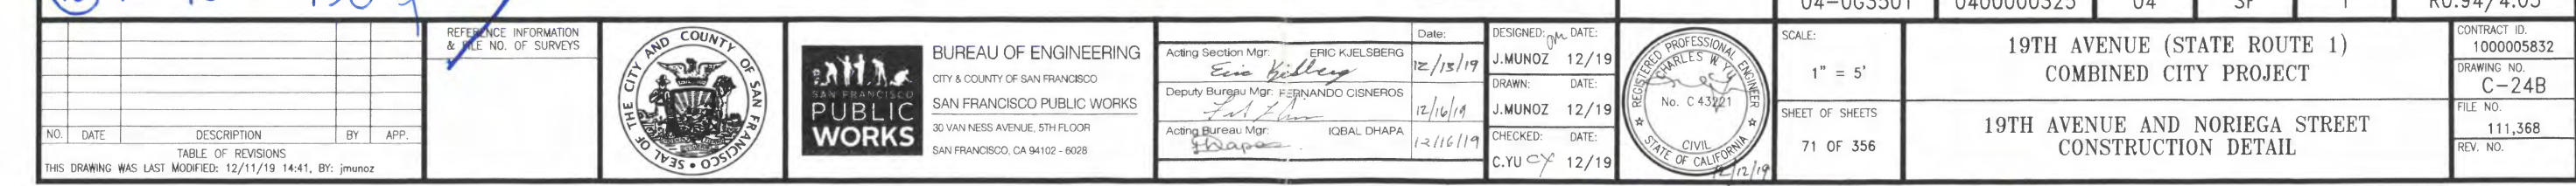 04-0G3501 0400000325 04 SF 1 R0.94/4.05
NO. DATE DESCRIPTION BY APP.
TABLE OF REVISIONS
THIS DRAWING WAS LAST MODIFIED: 12/11/19 14:41, BY: jmunoz
REFERENCE INFORMATION
& FILE NO. OF SURVEYS
SEAL OF THE CITY AND COUNTY OF SAN FRANCISCO
SAN FRANCISCO
PUBLIC
WORKS
BUREAU OF ENGINEERING
CITY & COUNTY OF SAN FRANCISCO
SAN FRANCISCO PUBLIC WORKS
30 VAN NESS AVENUE, 5TH FLOOR
SAN FRANCISCO, CA 94102 - 6028
Date:
Acting Section Mgr: ERIC KJELSBERG
12/13/19
Deputy Bureau Mgr: FERNANDO CISNEROS
12/16/19
Acting Bureau Mgr: IQBAL DHAPA
12/16/19
DESIGNED: DATE:
J.MUNOZ 12/19
DRAWN: DATE:
J.MUNOZ 12/19
CHECKED: DATE:
C.YU CY 12/19
REGISTERED PROFESSIONAL ENGINEER
CHARLES W YU
No. C 43221
CIVIL
STATE OF CALIFORNIA
12/12/19
SCALE:
1" = 5'
SHEET OF SHEETS
71 OF 356
19TH AVENUE (STATE ROUTE 1)
COMBINED CITY PROJECT
19TH AVENUE AND NORIEGA STREET
CONSTRUCTION DETAIL
CONTRACT ID.
1000005832
DRAWING NO.
C-24B
FILE NO.
111,368
REV. NO.